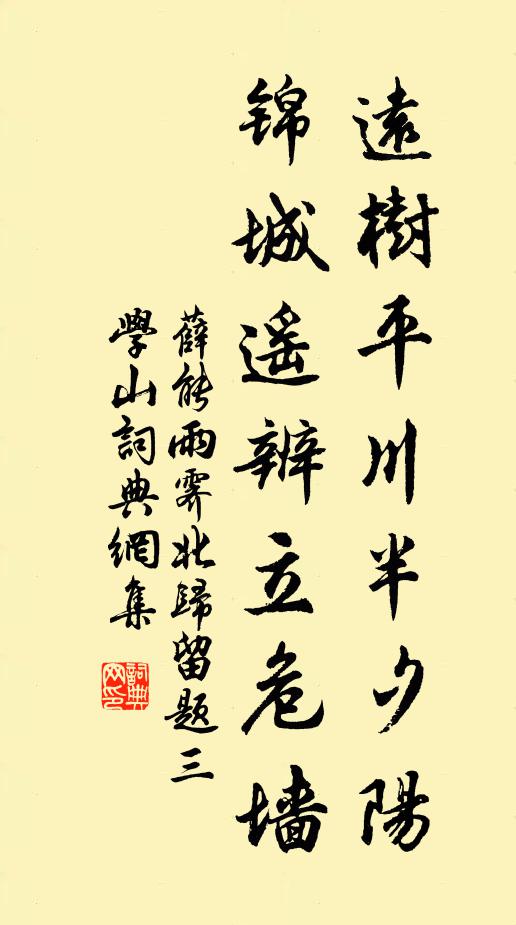 遠樹平川半夕陽
錦城遥辨立危墙
薛能雨霽北歸留題三
學山詞典網集
詞典网印